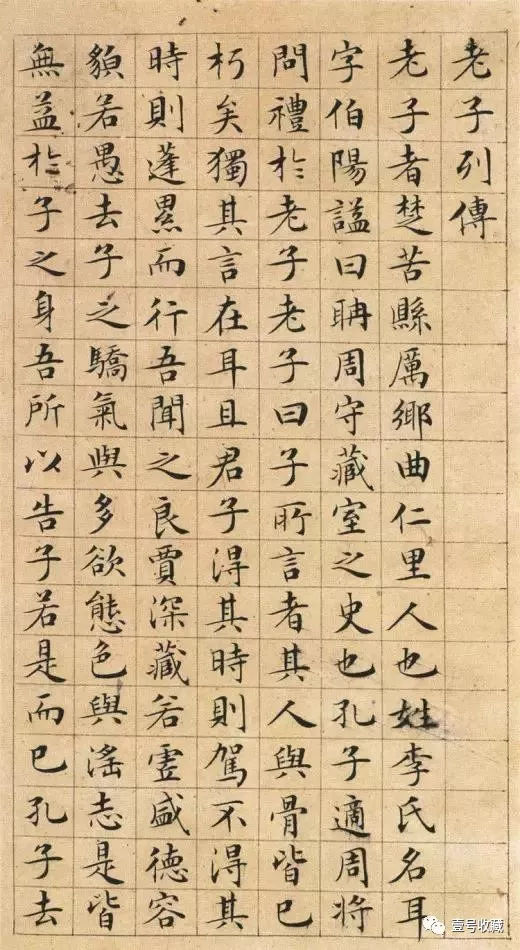 老子列傳
老子者楚苦縣厲鄉曲仁里人也姓李氏名耳
字伯陽謚曰聃周守藏室之史也孔子適周將
問禮於老子老子曰子所言者其人與骨皆已
朽矣獨其言在耳且君子得其時則駕不得其
時則蓬累而行吾聞之良賈深藏若虛盛德容
貌若愚去子之驕氣與多欲態色與淫志是皆
無益於子之身吾所以告子若是而已孔子去
壹号收藏